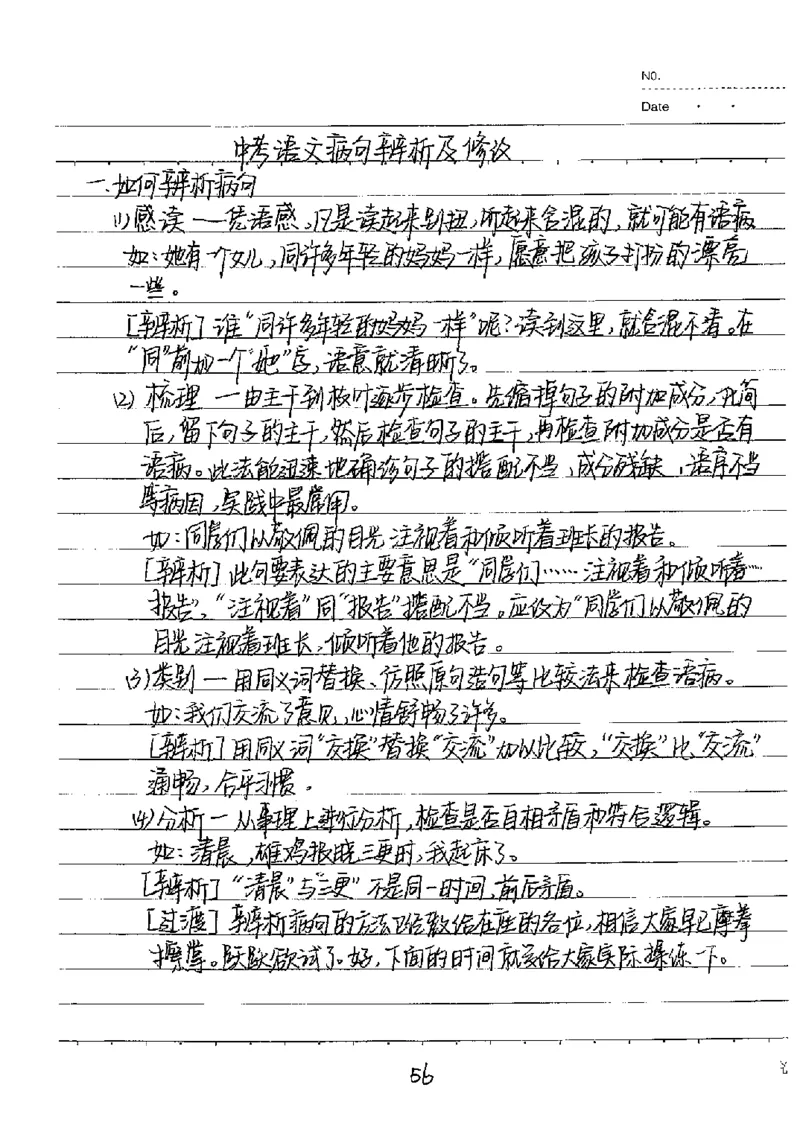 NO.
Date
中考语文病句辨析及修改
一.如何辨析病句
(1)感读 — 凭语感,凡是读起来别扭,听起来含混的,就可能有语病
如:她有一个女儿,同许多年轻的妈妈一样,愿意把孩子打扮的漂亮
一些。
[辨析]谁“同许多年轻的妈妈一样”呢?读到这里,就含混不清。在
“同”前加一个“她”字,语意就清晰了。
(2) 梳理 — 由主干到枝叶逐步检查。先缩掉句子的附加成分,化简
后,留下句子的主干,然后检查句子的主干,再检查附加成分是否有
语病。此法能迅速地确诊句子的搭配不当,成分残缺,语序不当
等病因,实践中最常用。
如:同学们以敬佩的目光注视着和倾听着班长的报告。
[辨析]此句要表达的主要意思是“同学们……注视着和倾听着…
报告”,“注视着”同“报告”搭配不当。应改为“同学们以敬佩的
目光注视着班长,倾听着他的报告。
(3)类别 — 用同义词替换、仿照原句造句等比较法来检查语病。
如:我们交流了意见,心情舒畅了许多。
[辨析]用同义词“交换”替换“交流”加以比较,“交换”比“交流”
通畅,合乎习惯。
(4)分析 — 从事理上进行分析,检查是否自相矛盾和符合逻辑。
如:清晨,雄鸡报晓三更时,我起床了。
[辨析]“清晨”与“三更”不是同一时间,前后矛盾。
[过渡]辨析病句的方法已经教给在座的各位,相信大家早已摩拳
擦掌。跃跃欲试了。好,下面的时间就交给大家实际操练一下。
56